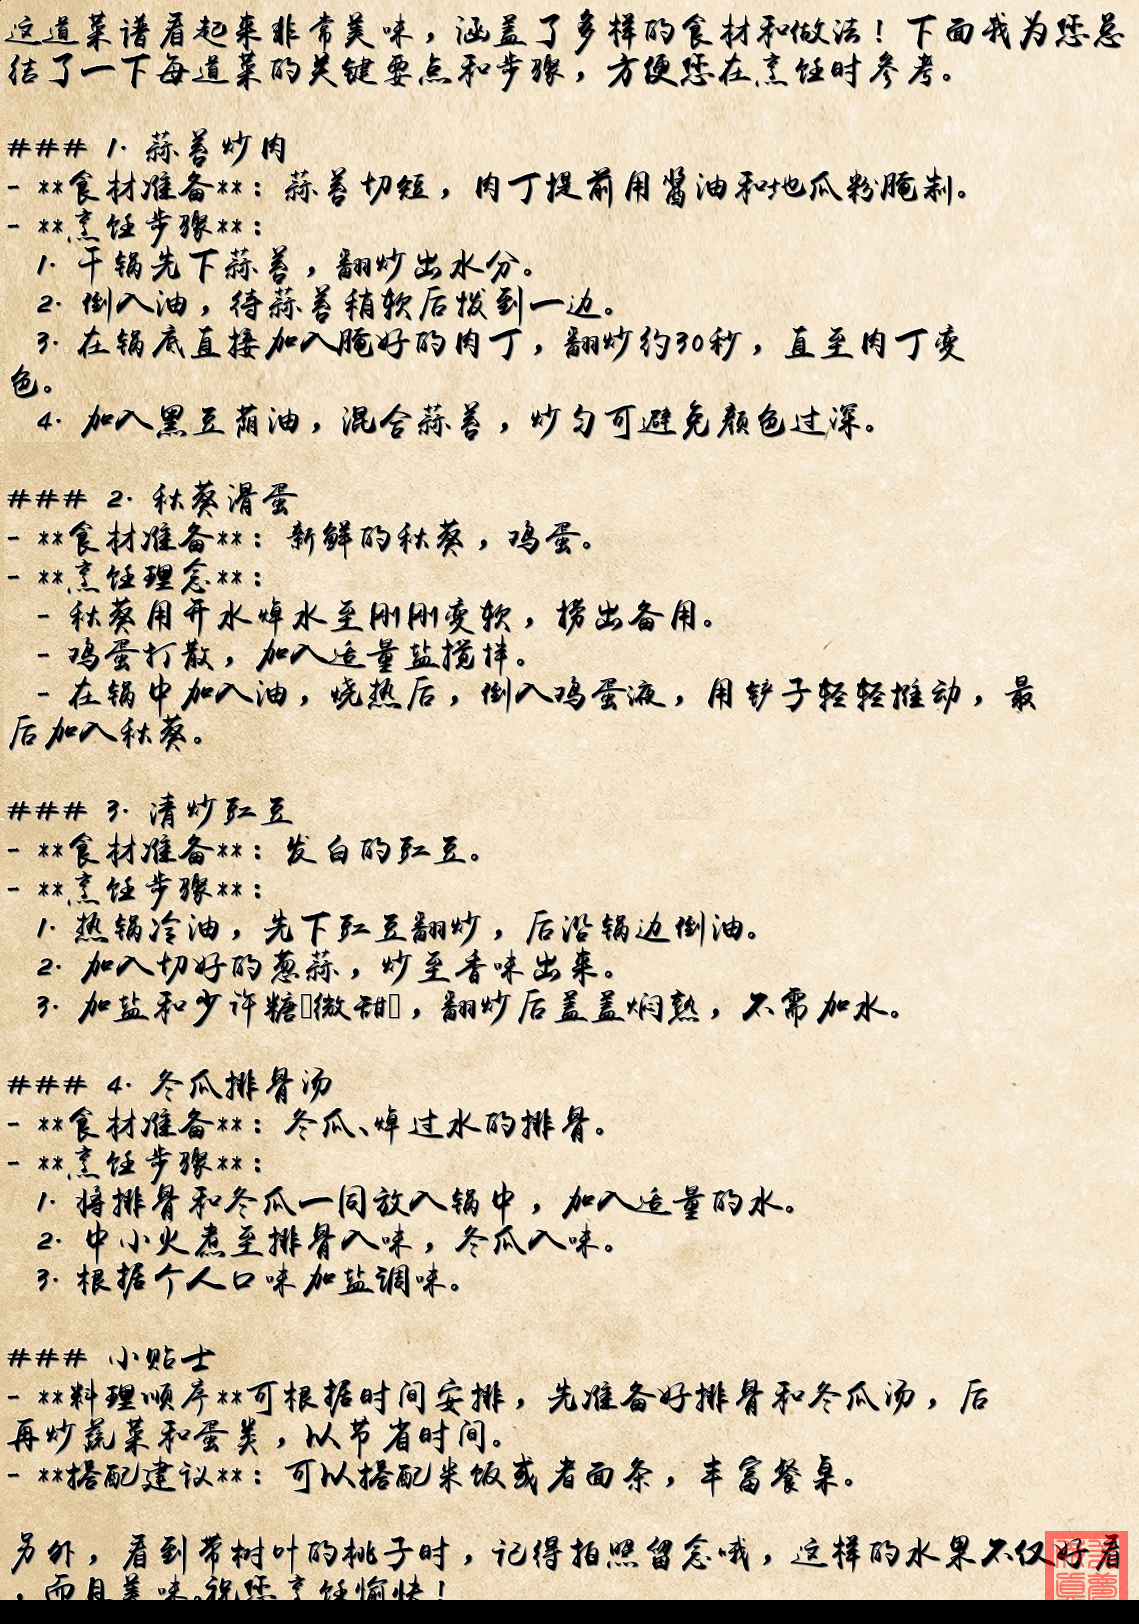 这道菜谱看起来非常美味，涵盖了多样的食材和做法！下面我为您总
结了一下每道菜的关键要点和步骤，方便您在烹饪时参考。
### 1. 蒜薹炒肉
- **食材准备**：蒜薹切短，肉丁提前用酱油和地瓜粉腌制。
- **烹饪步骤**：
1. 干锅先下蒜薹，翻炒出水分。
2. 倒入油，待蒜薹稍软后拨到一边。
3. 在锅底直接加入腌好的肉丁，翻炒约30秒，直至肉丁变
色。
4. 加入黑豆荫油，混合蒜薹，炒匀可避免颜色过深。
### 2. 秋葵滑蛋
- **食材准备**：新鲜的秋葵，鸡蛋。
- **烹饪理念**：
- 秋葵用开水焯水至刚刚变软，捞出备用。
- 鸡蛋打散，加入适量盐搅拌。
- 在锅中加入油，烧热后，倒入鸡蛋液，用铲子轻轻推动，最
后加入秋葵。
### 3. 清炒豇豆
- **食材准备**：发白的豇豆。
- **烹饪步骤**：
1. 热锅冷油，先下豇豆翻炒，后沿锅边倒油。
2. 加入切好的葱蒜，炒至香味出来。
3. 加盐和少许糖微甜，翻炒后盖盖焖熟，不需加水。
### 4. 冬瓜排骨汤
- **食材准备**：冬瓜、焯过水的排骨。
- **烹饪步骤**：
1. 将排骨和冬瓜一同放入锅中，加入适量的水。
2. 中小火煮至排骨入味，冬瓜入味。
3. 根据个人口味加盐调味。
### 小贴士
- **料理顺序**可根据时间安排，先准备好排骨和冬瓜汤，后
再炒蔬菜和蛋类，以节省时间。
- **搭配建议**：可以搭配米饭或者面条，丰富餐桌。
另外，看到带树叶的桃子时，记得拍照留念哦，这样的水果不仅好看
，而且美味。祝您烹饪愉快！